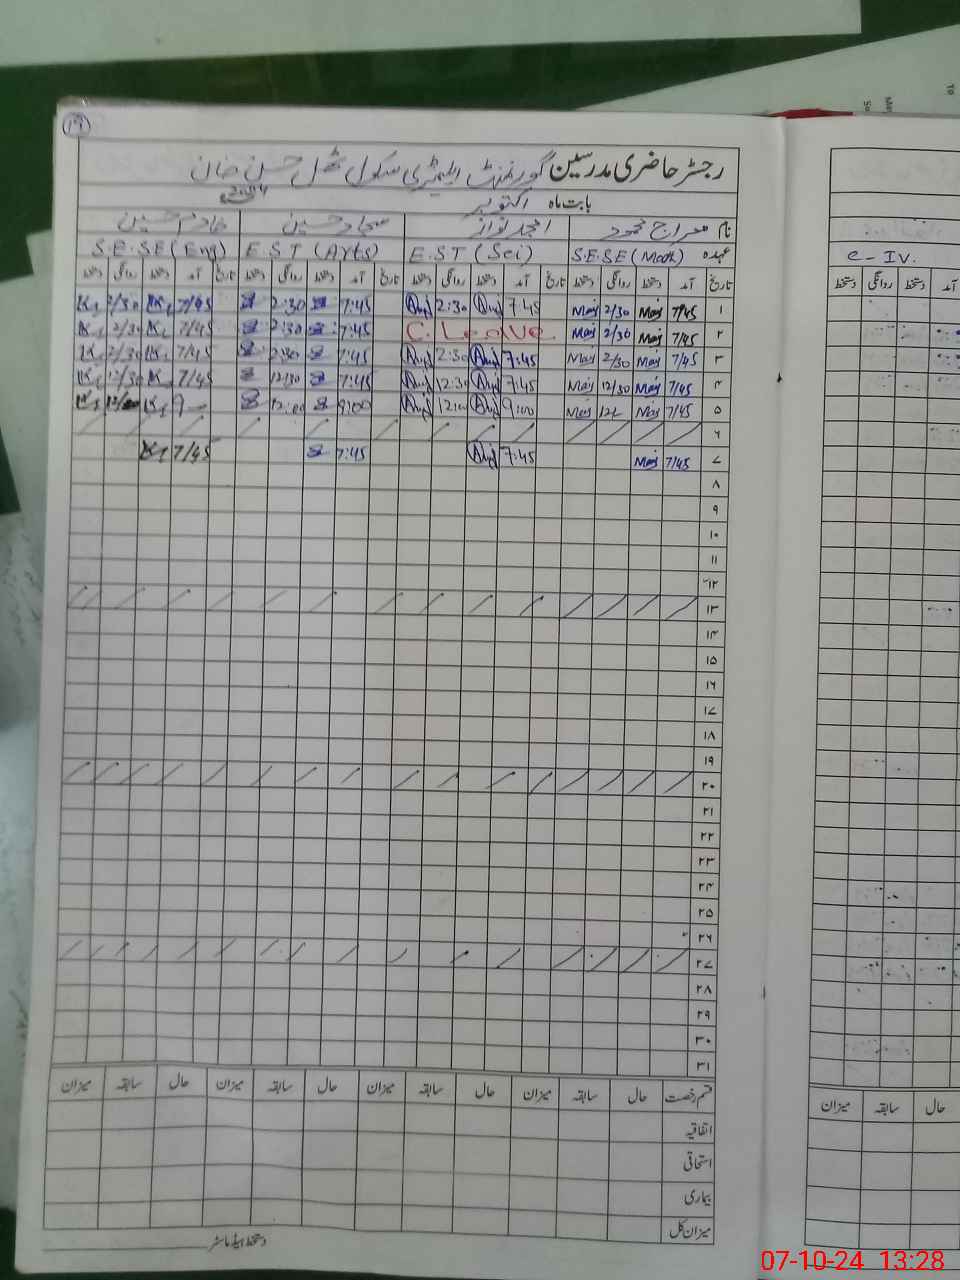 ١٩
رجسٹر حاضری مدرسین گورنمنٹ ایلیمنٹری سکول ٹھل حسن خان
بابت ماہ اکتوبر 2024
نام معراج محمود امجد نواز سجاد حسین خادم حسین
عہدہ S.E.SE (Math) E.S.T (Sci) E.S.T (Arts) S.E.SE (Eng)
تاریخ آمد دستخط روانگی دستخط تاریخ آمد دستخط روانگی دستخط تاریخ آمد دستخط روانگی دستخط تاریخ آمد دستخط روانگی دستخط
١ 7/45 2/30 7:45 2:30 7:45 2:30 7/45 2/30
٢ 7/45 2/30 C. Leave 7:45 2:30 7/45 2/30
٣ 7/45 2/30 7:45 2:30 7:45 2:30 7/45 2/30
٤ 7/45 12/30 7:45 12:30 7:45 12:30 7/45 12/30
٥ 7/45 9:00 12:00 9:00 12:00 9
٦
٧ 7/45 7:45 7:45 7/45
٨
٩
١٠
١١
١٢
١٣
١٤
١٥
١٦
١٧
١٨
١٩
٢٠
٢١
٢٢
٢٣
٢٤
٢٥
٢٦
٢٧
٢٨
٢٩
٣٠
٣١
قسم رخصت حال سابقہ میزان حال سابقہ میزان حال سابقہ میزان حال سابقہ میزان
اتفاقیہ
استحقاقی
بیماری
میزان کل
دستخط ہیڈ ماسٹر
C-IV.
آمد دستخط روانگی دستخط
حال سابقہ میزان
07-10-24 13:28